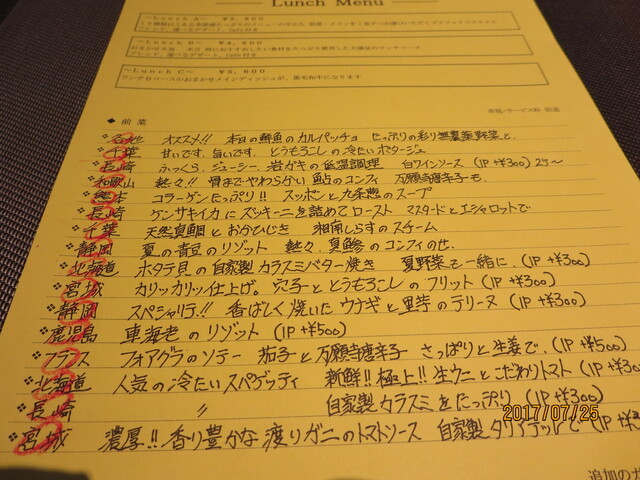 Lunch Menu
~Lunch A~ ¥2,800
~Lunch B~
~Lunch C~ ¥5,600
ランチBコースのおまかせメインディッシュが、黒毛和牛になります
◆前菜
オススメ!! 本日の鮮魚のカルパッチョ たっぷりの彩り無農薬野菜と、
千葉 甘いです。旨いです。とうもろこしの冷たいポタージュ
長崎 ふっくら、ジューシー 岩ガキの低温調理 白ワインソース (1P +¥300) 2P〜
和歌山 軽々!! 骨までやわらかい鮎のコンフィ 万願寺唐辛子も。
熊本 コラーゲンたっぷり!! スッポンと九条葱のスープ
長崎 ケンサキイカにズッキーニを詰めてロースト マスタードとエシャロットで
千葉 天然真鯛とお介ひじき 湘南しらすのスチーム
静岡 夏の青豆のリゾット 軽々、真鯵のコンフィのせ、
北海道 ホタテ貝の自家製カラスミバター焼き 夏野菜も一緒に。(1P +¥300)
宮城 カリッカリッ仕上げ。穴子ととうもろこしのフリット (1P +¥300)
静岡 スペシャリテ!! 香ばしく焼いたウナギと里芋のテリーヌ (1P +¥300)
鹿児島 車海老のリゾット (1P +¥500)
フランス フォアグラのソテー 茄子と万願寺唐辛子 さっぱりと生姜で。(1P +¥500)
北海道 人気の冷たいスパゲッティ 新鮮!! 極上!! 生ウニとこだわりトマト (1P +¥300)
長崎 〃 自家製カラスミをたっぷり (1P +¥300)
宮城 濃厚!! 香り豊かな渡りガニのトマトソース 自家製タリアテッレで (1P +¥3
2017/07/25
追加の